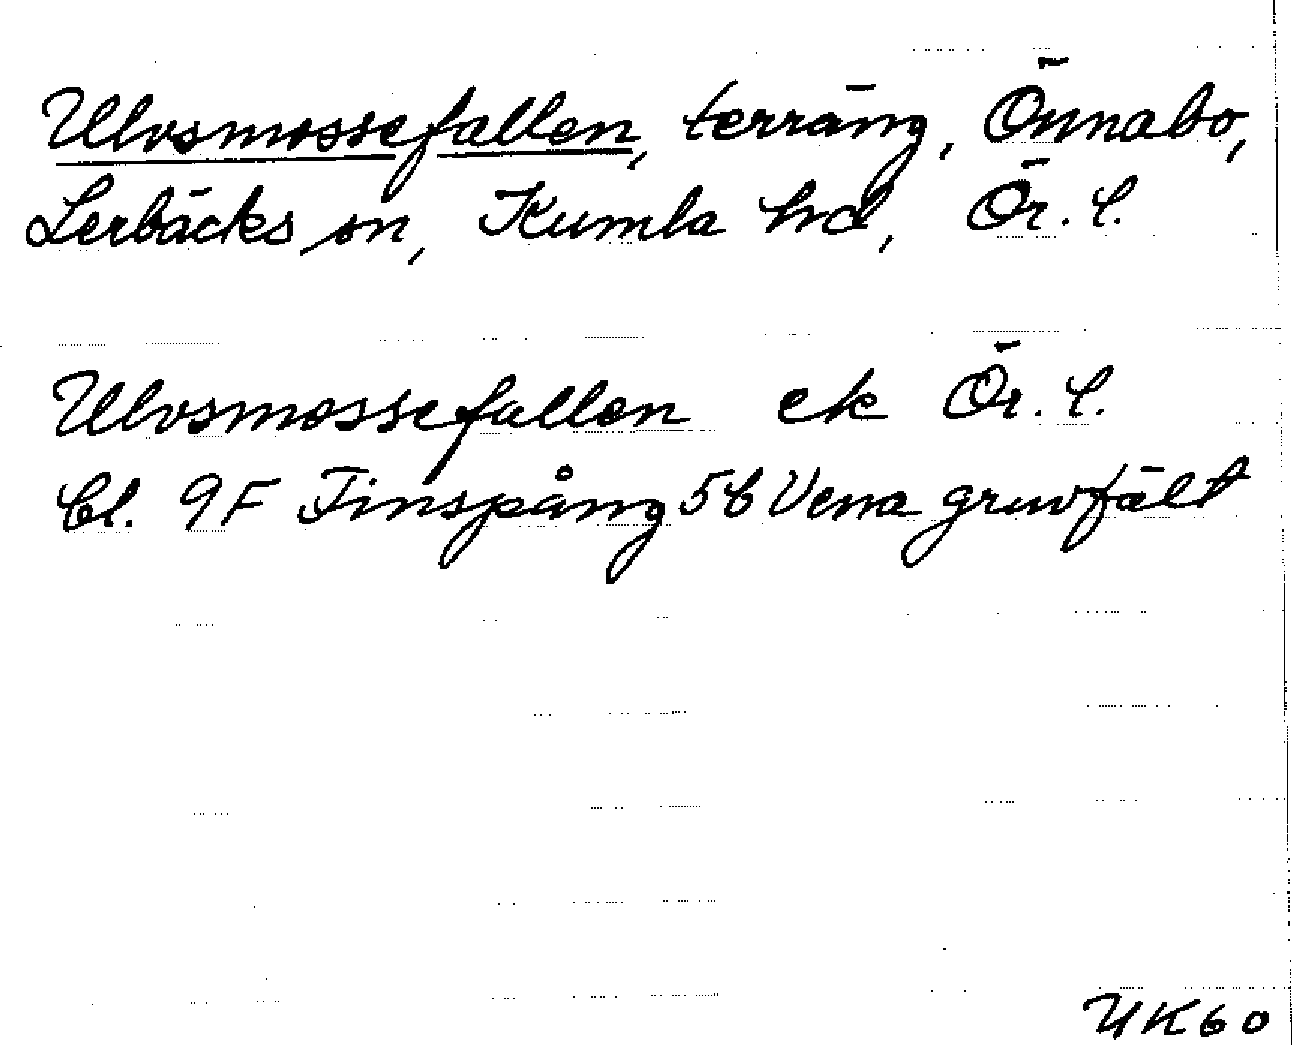 Ulvsmossefallen, terräng, Önnabo,
Lerbäcks sn, Kumla hd, Ör. l.
Ulvsmossefallen ek Ör. l.
Bl. 9F Finspång 5b Vena gruvfält
UK60